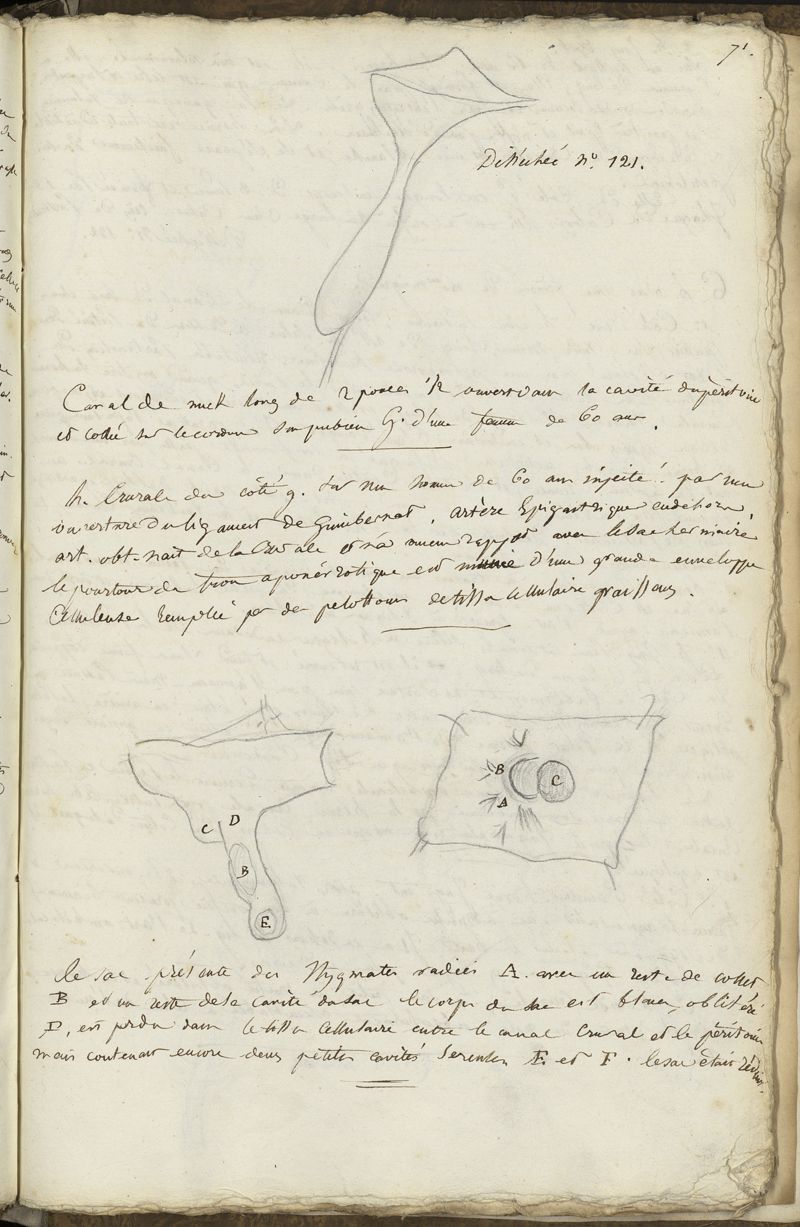 71.
Disséchée n.º 121.
Canal de nuck long de 2 pouces 1/2 ouvert dans la cavité du péritoine
et collé sur le cordon sus pubien G. d'une femme de 60 ans.
h. Crurale du côté g. sur un homme de 60 ans injecté. par une
ouverture du ligament de Guimbernat, artère Epigastrique en dehors,
art. obt. nait de la Crurale et n'a aucun rapport avec le sac herniaire
le pourtour du trou aponévrotique est munie d'une grande enveloppe
Celluleuse remplie par des pelottons de tissu cellulaire graisseux.
C D
B
E
B C
A
le sac présente des stygmates radiées A. avec un reste de collet
B et un reste de la cavité du sac le corps du sac est blanc, oblitéré
D, est perdu dans le tissu cellulaire entre le canal Crural et le péritoine
mais contenant encore deux petites cavités séreuses E et F. le sac était